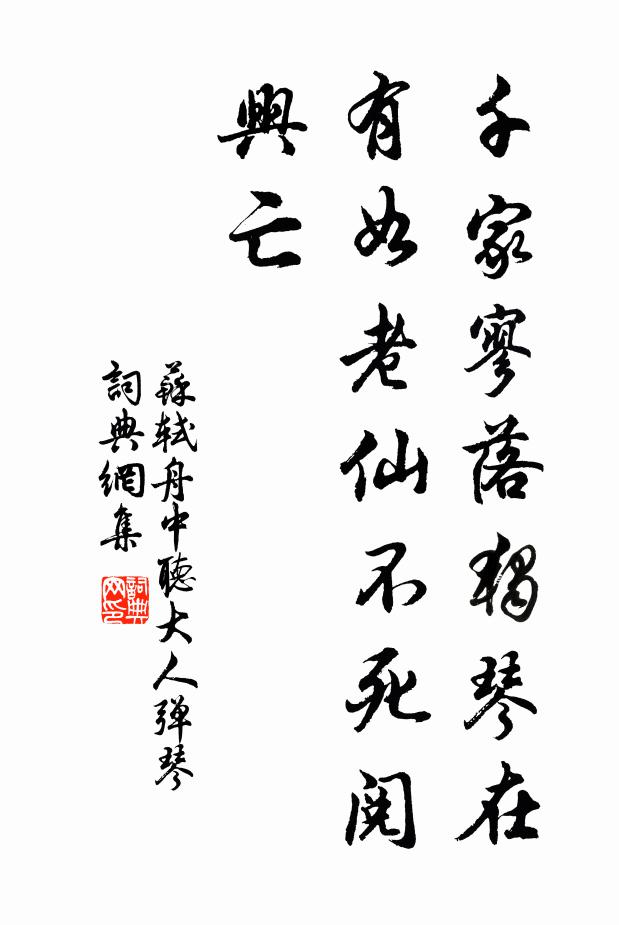 千家寥落獨琴在
有如老仙不死閱
興亡
蘇軾舟中聽大人彈琴
詞典網集
詞典網印